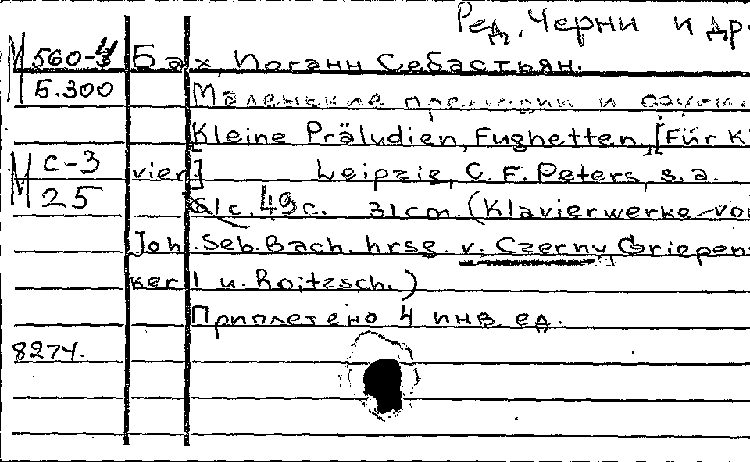 Ред. Черни и др.
М 560-4 Бах, Иоганн Себастьян.
Б.300 Маленькие прелюдии и
Kleine Präludien, Fughetten [Für K
М С-3 vier] Leipzig, C. F. Peters, s. a.
25 49с. 31cm (Klavierwerke von
Joh. Seb. Bach. hrsg. v. Czerny, Griepen
kerl u. Roitzsch.)
Приплетено 4 инв. ед.
8274.